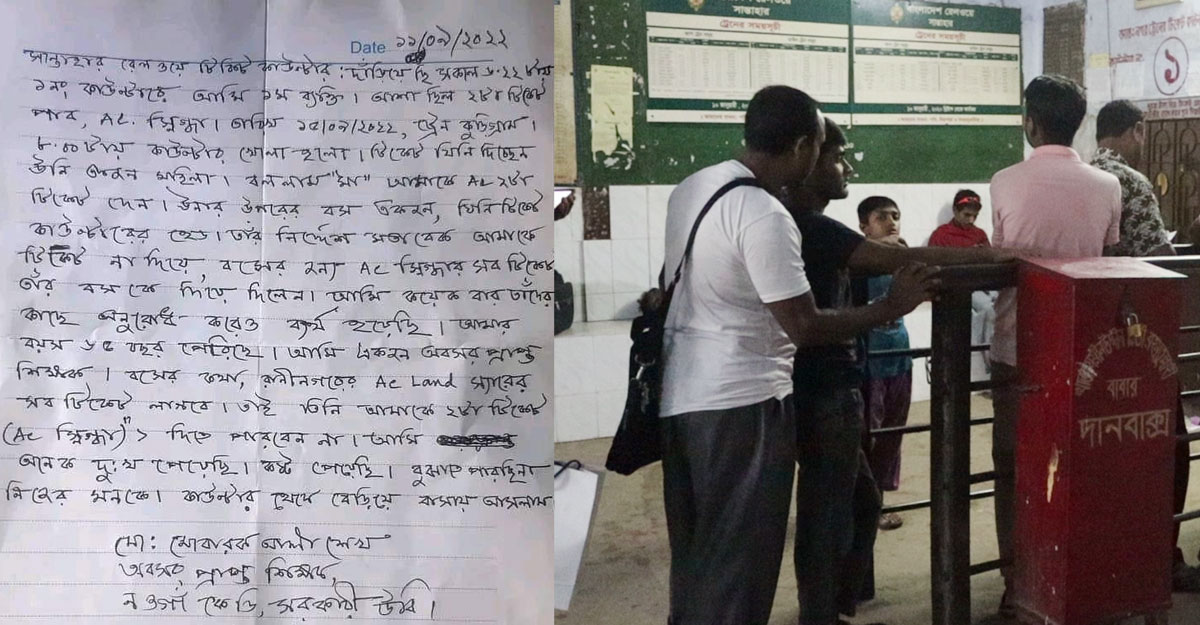 Date ১১/০৯/২০২২
সান্তাহার রেলওয়ে টিকিট কাউন্টার: দাঁড়িয়েছি সকাল ৬.২২ টায়
১নং কাউন্টারে আমি ১ম ব্যক্তি। আশা ছিল ২টা টিকেট
পাব, AC. স্নিগ্ধা। তারিখ ১৫/০৯/২০২২, ট্রেন কুড়িগ্রাম।
৮.০০টায় কাউন্টার খোলা হলো। টিকেট যিনি দিচ্ছেন
উনি একজন মহিলা। বললাম "মা" আমাকে AC ২টা
টিকেট দেন। উনার উপরের বস একজন, যিনি টিকেট
কাউন্টারের হেড। তার নির্দেশ মতাবেক আমাকে
টিকেট না দিয়ে, বসের জন্য AC স্নিগ্ধার সব টিকেট
তাঁর বসকে দিয়ে দিলেন। আমি কয়েক বার তাঁদের
কাছে অনুরোধ করেও ব্যর্থ হয়েছি। আমার
বয়স ৬৫ বছর পেরিয়েছে। আমি একজন অবসর প্রাপ্ত
শিক্ষক। বসের কথা, রানীনগরের AC Land স্যারের
সব টিকেট লাগবে। তাই তিনি আমাকে ২টা টিকেট
(AC স্নিগ্ধা) দিতে পারবেন না। আমি
অনেক দু:খ পেয়েছি। কষ্ট পেয়েছি। বুঝাতে পারছিনা
নিজের মনকে। কাউন্টার থেকে বেড়িয়ে বাসায় আসলাম
মো: মোবারক আলী শেখ
অবসর প্রাপ্ত শিক্ষক,
নওগাঁ কেডি, সরকারী উবি।
বাংলাদেশ রেলওয়ে
সান্তাহার
ট্রেনের সময়সূচী
বাংলাদেশ রেলওয়ে
সান্তাহার
ট্রেনের সময়সূচী
১
বাবার
দানবাক্স